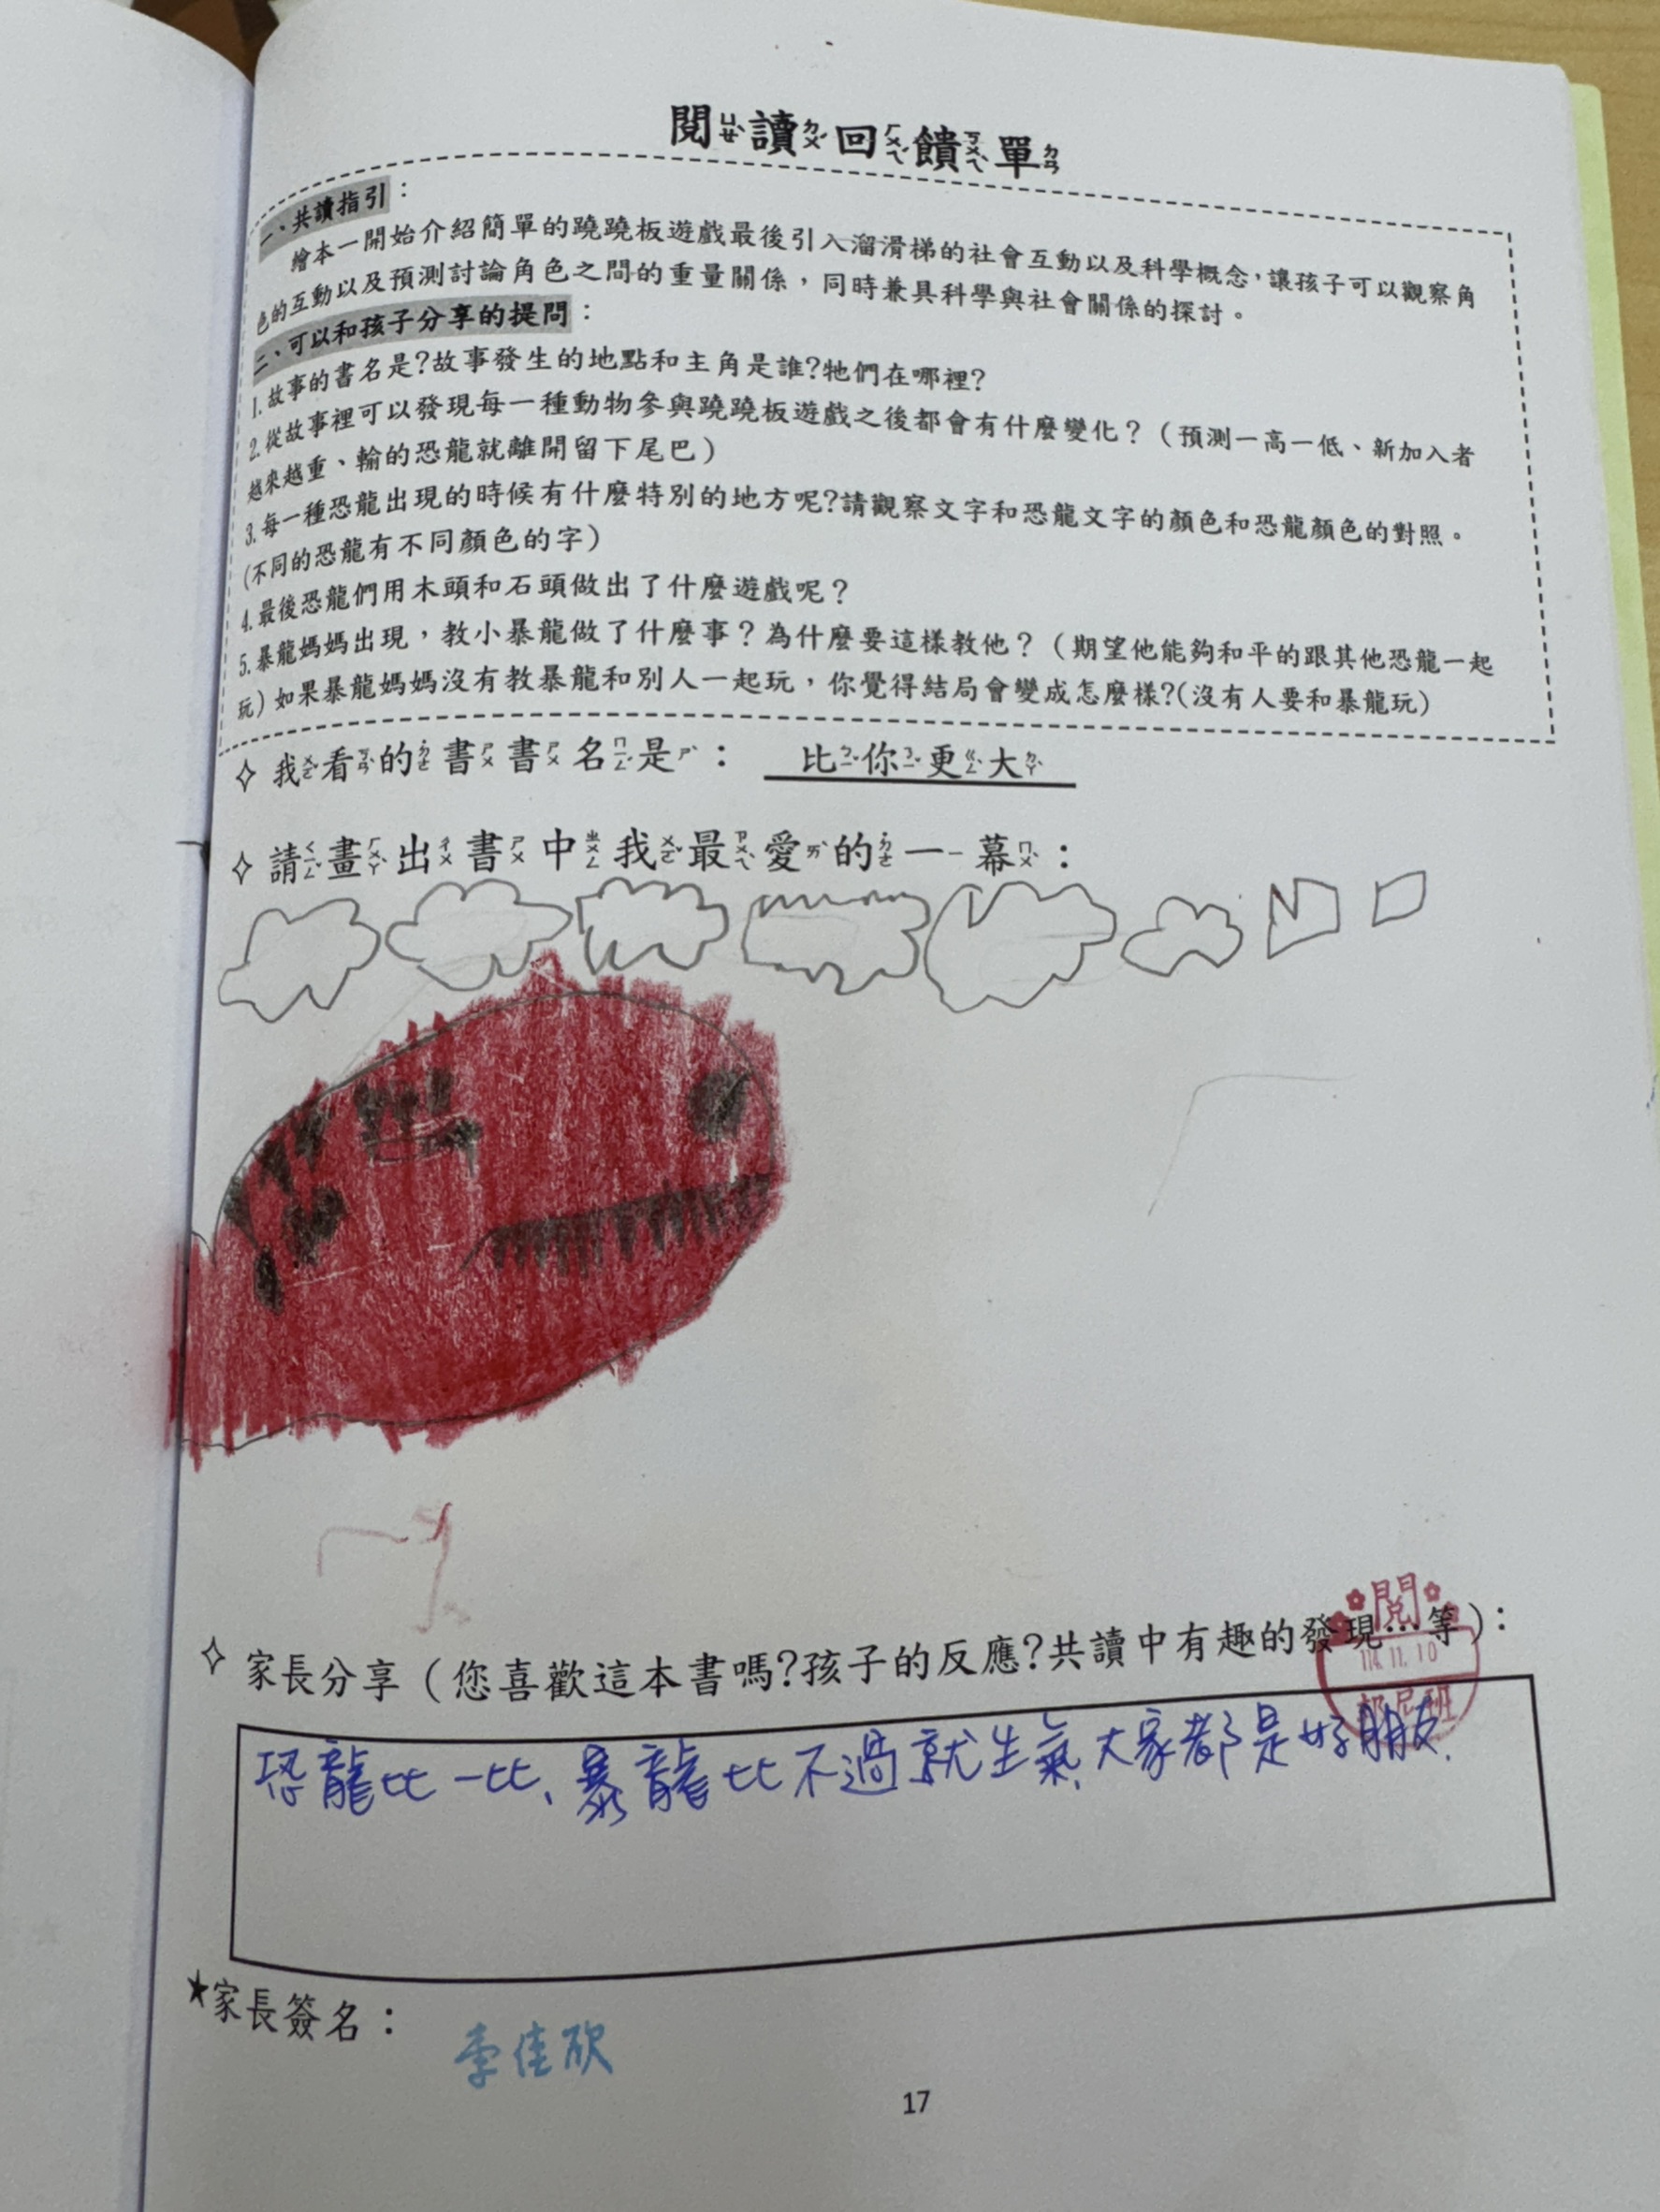 閱讀回饋單
一、共讀指引：
繪本一開始介紹簡單的蹺蹺板遊戲最後引入溜滑梯的社會互動以及科學概念，讓孩子可以觀察角
色的互動以及預測討論角色之間的重量關係，同時兼具科學與社會關係的探討。
二、可以和孩子分享的提問：
1.故事的書名是?故事發生的地點和主角是誰?牠們在哪裡?
2.從故事裡可以發現每一種動物參與蹺蹺板遊戲之後都會有什麼變化？（預測一高一低、新加入者
越來越重、輸的恐龍就離開留下尾巴）
3.每一種恐龍出現的時候有什麼特別的地方呢?請觀察文字和恐龍文字的顏色和恐龍顏色的對照。
(不同的恐龍有不同顏色的字)
4.最後恐龍們用木頭和石頭做出了什麼遊戲呢？
5.暴龍媽媽出現，教小暴龍做了什麼事？為什麼要這樣教他？（期望他能夠和平的跟其他恐龍一起
玩）如果暴龍媽媽沒有教暴龍和別人一起玩，你覺得結局會變成怎麼樣?(沒有人要和暴龍玩)
✧我看的書書名是：比你更大
✧請畫出書中我最愛的一幕：
✧家長分享（您喜歡這本書嗎?孩子的反應?共讀中有趣的發現…等)：
閱
114.11.10
恐龍比一比、暴龍比不過就生氣,大家都是好朋友.
★家長簽名：
李佳欣
17